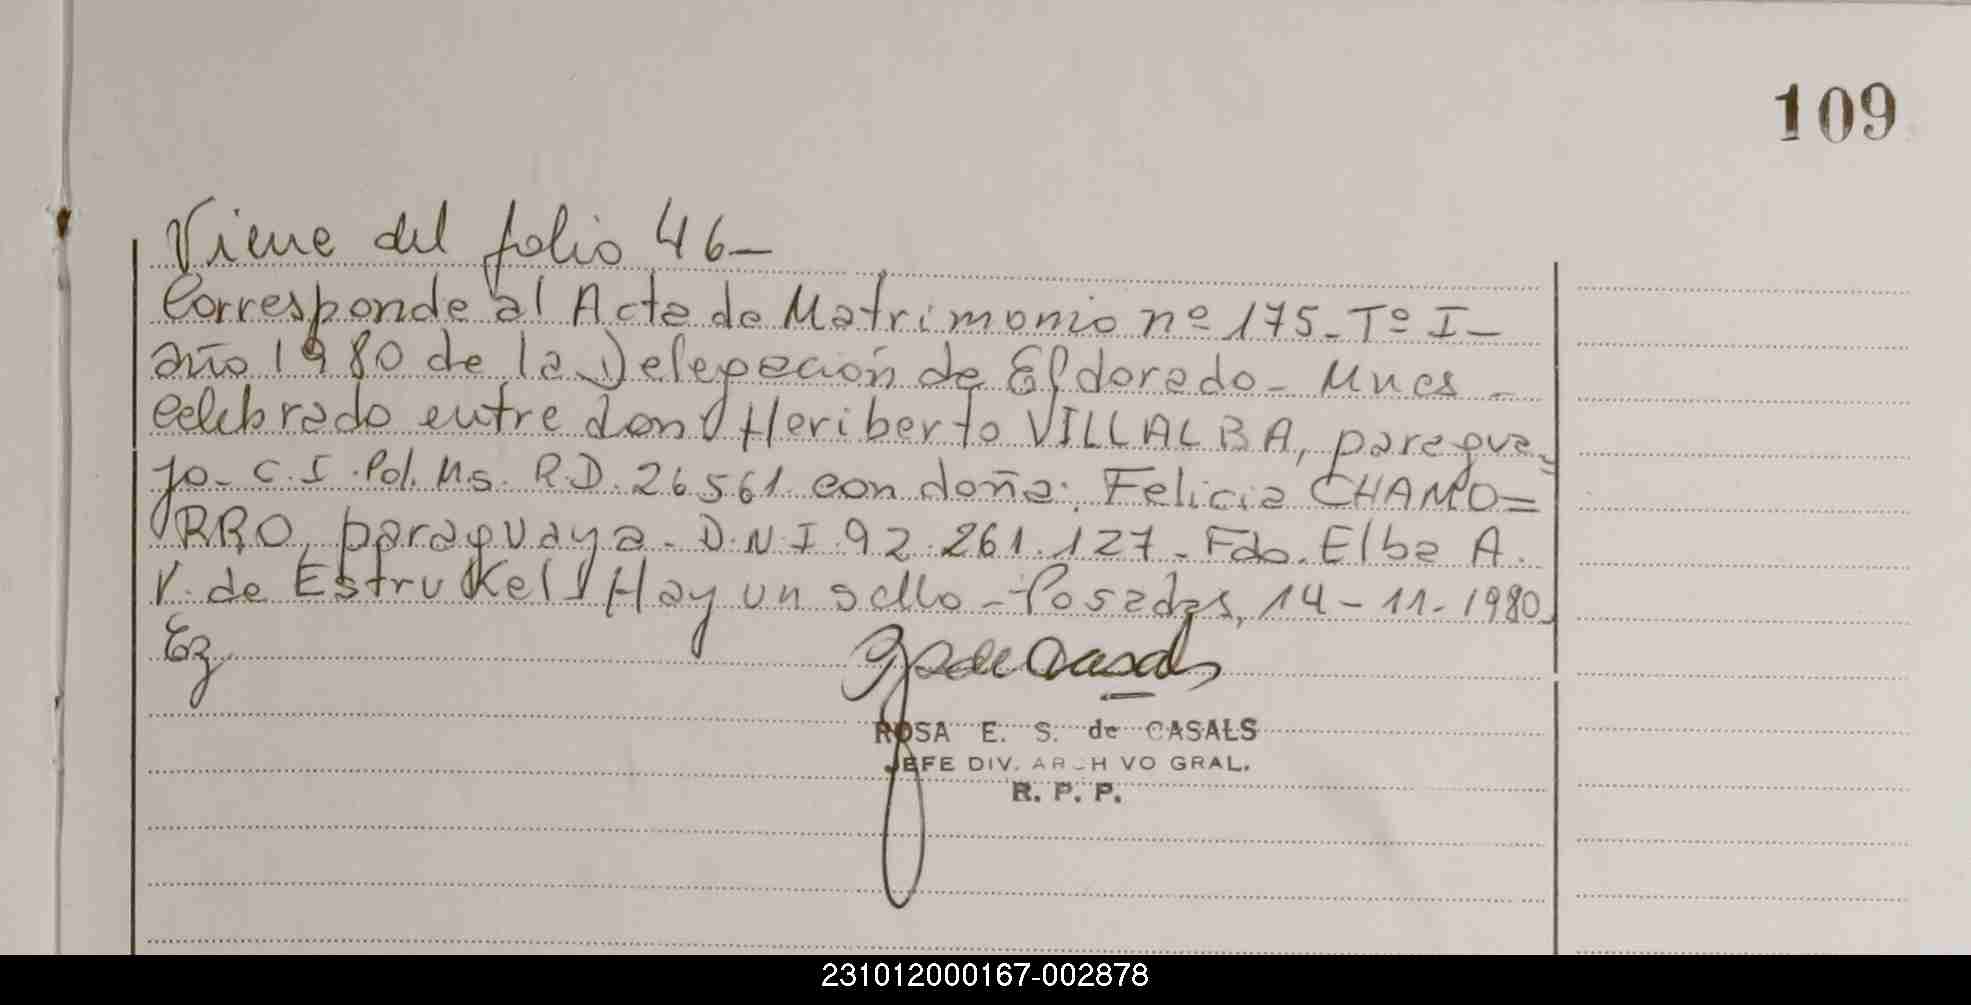 109
Viene del folio 46-
Corresponde al Acta de Matrimonio nº 175- Tº I-
año 1980 de la Delegación de Eldorado- Mnes-
celebrado entre don Heriberto VILLALBA, paragua-
yo- C.I. Pol. Ms. R.D. 26561 con doña: Felicia CHAMO=
RRO, paraguaya- D.N.I. 92.261.127- Fdo. Elba A.
V. de Estrukel Hay un sello- Posadas, 14-11-1980-
Ez
ROSA E. S. de CASALS
JEFE DIV. ARCH VO GRAL.
R. P. P.
231012000167-002878